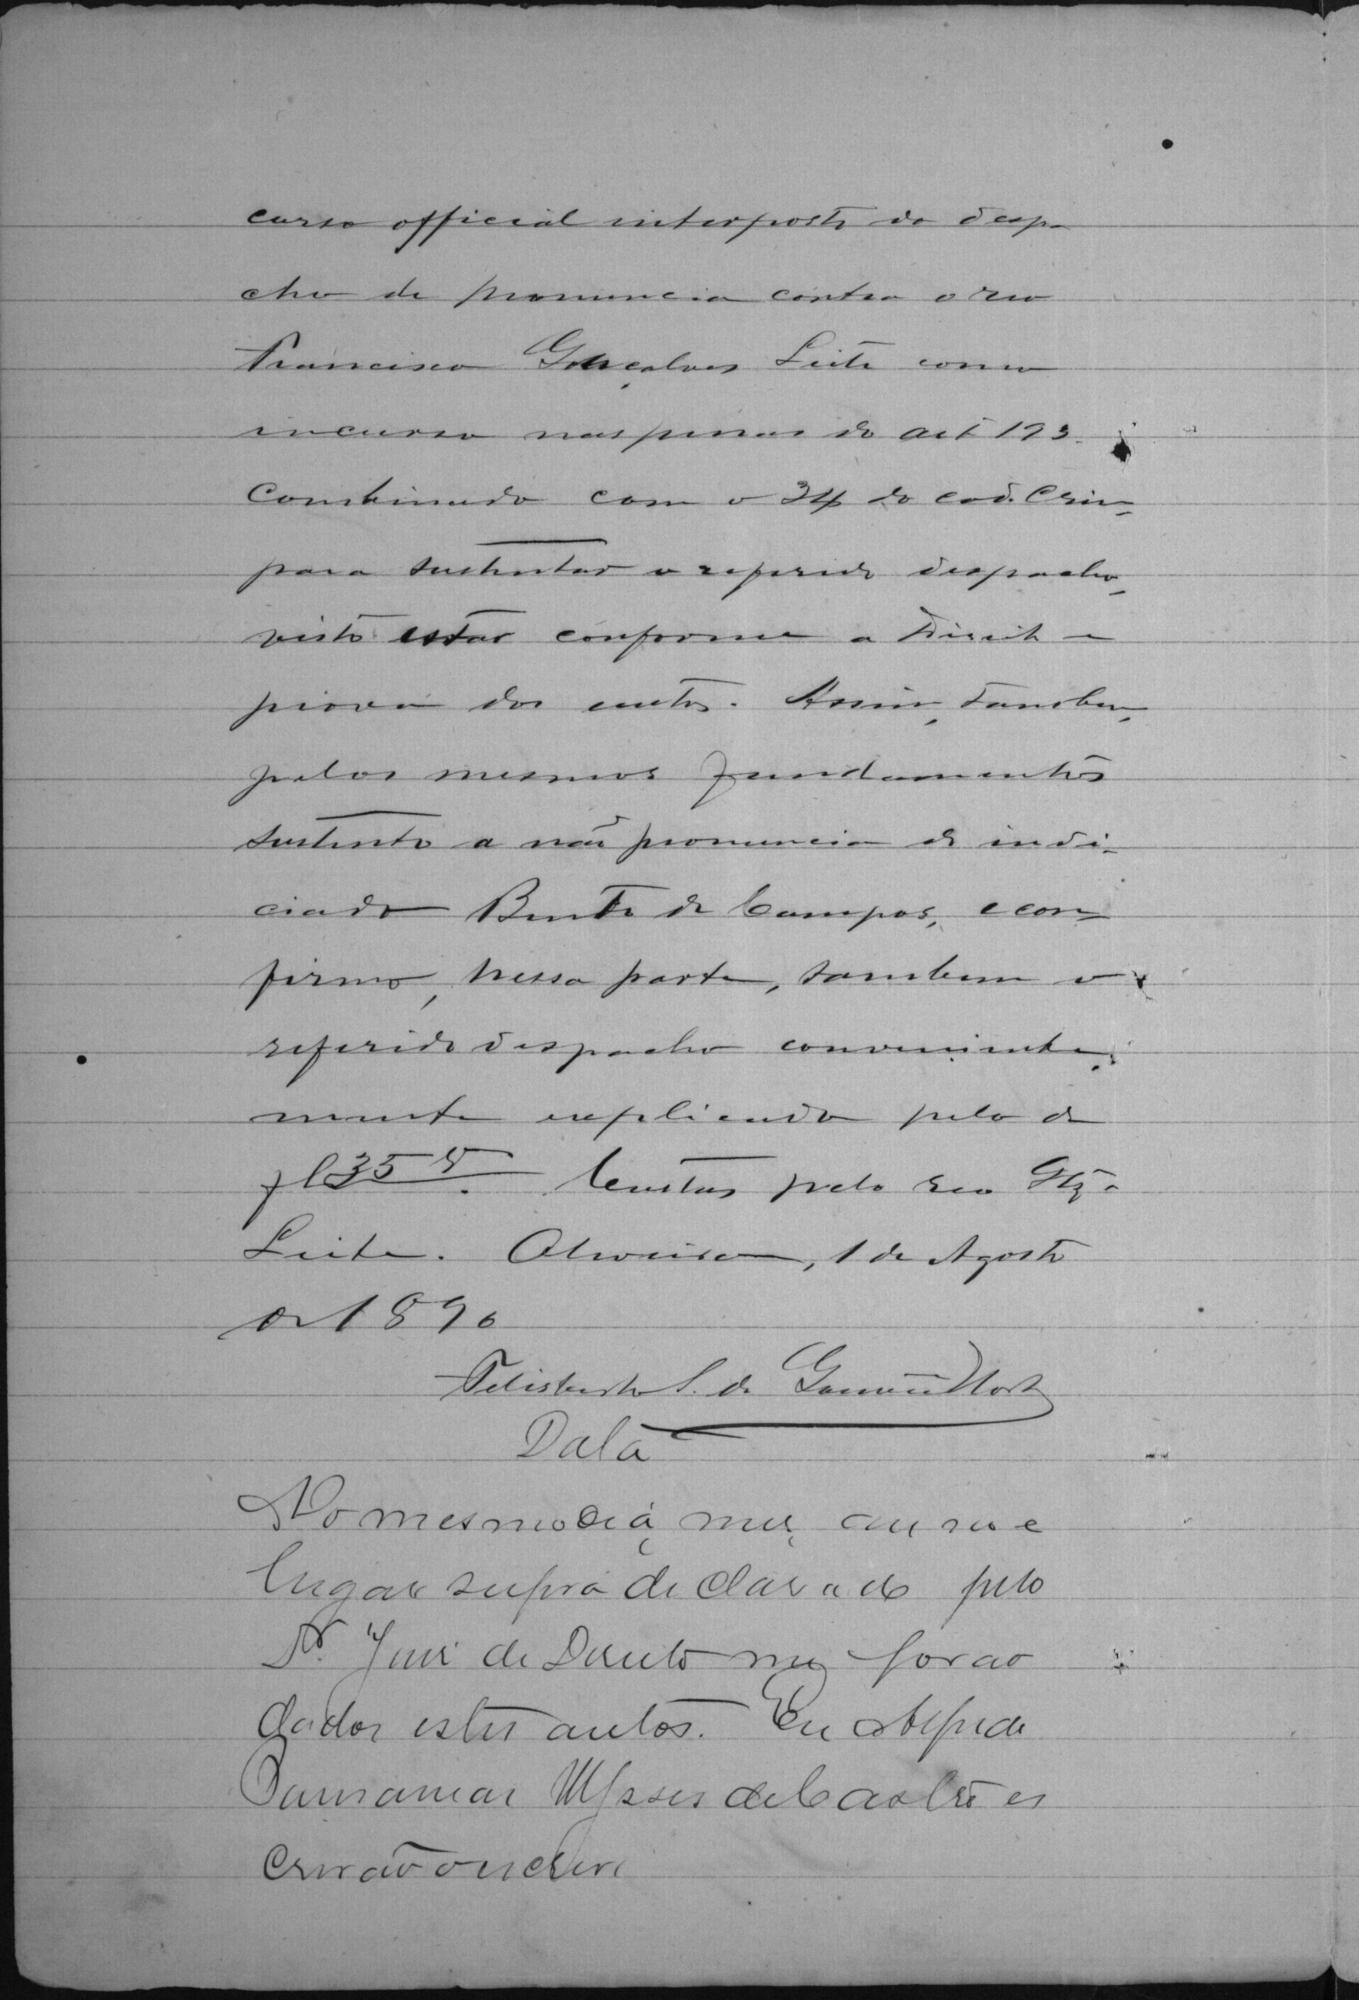 curso official interposto do despa-
cho de pronuncia contra o reo
Francisco Gonçalves Leite como
incurso nas penas do art 193
Combinado com o 34 do cod. Crim,
para sustentar o referido despacho,
visto estar conforme a Direito e
prova dos autos. Assim, tambem,
pelos mesmos fundamentos
sustento a não pronuncia do indi-
ciado Bento de Campos, e con
firmo, nessa parte, tambem o
referido despacho conveniente,
mente explicado pelo de
fl 35 v. Custas pelo reo Glz
Leite. 1 de Agosto
de 1890
Felisberto S. de
Data
No mesmo dia, mez, anno e
lugar supra declarado pelo
Dr. Juiz de Direito me forão
dados estes autos. Eu
Ulysses de Castro es
crivão o escrevi